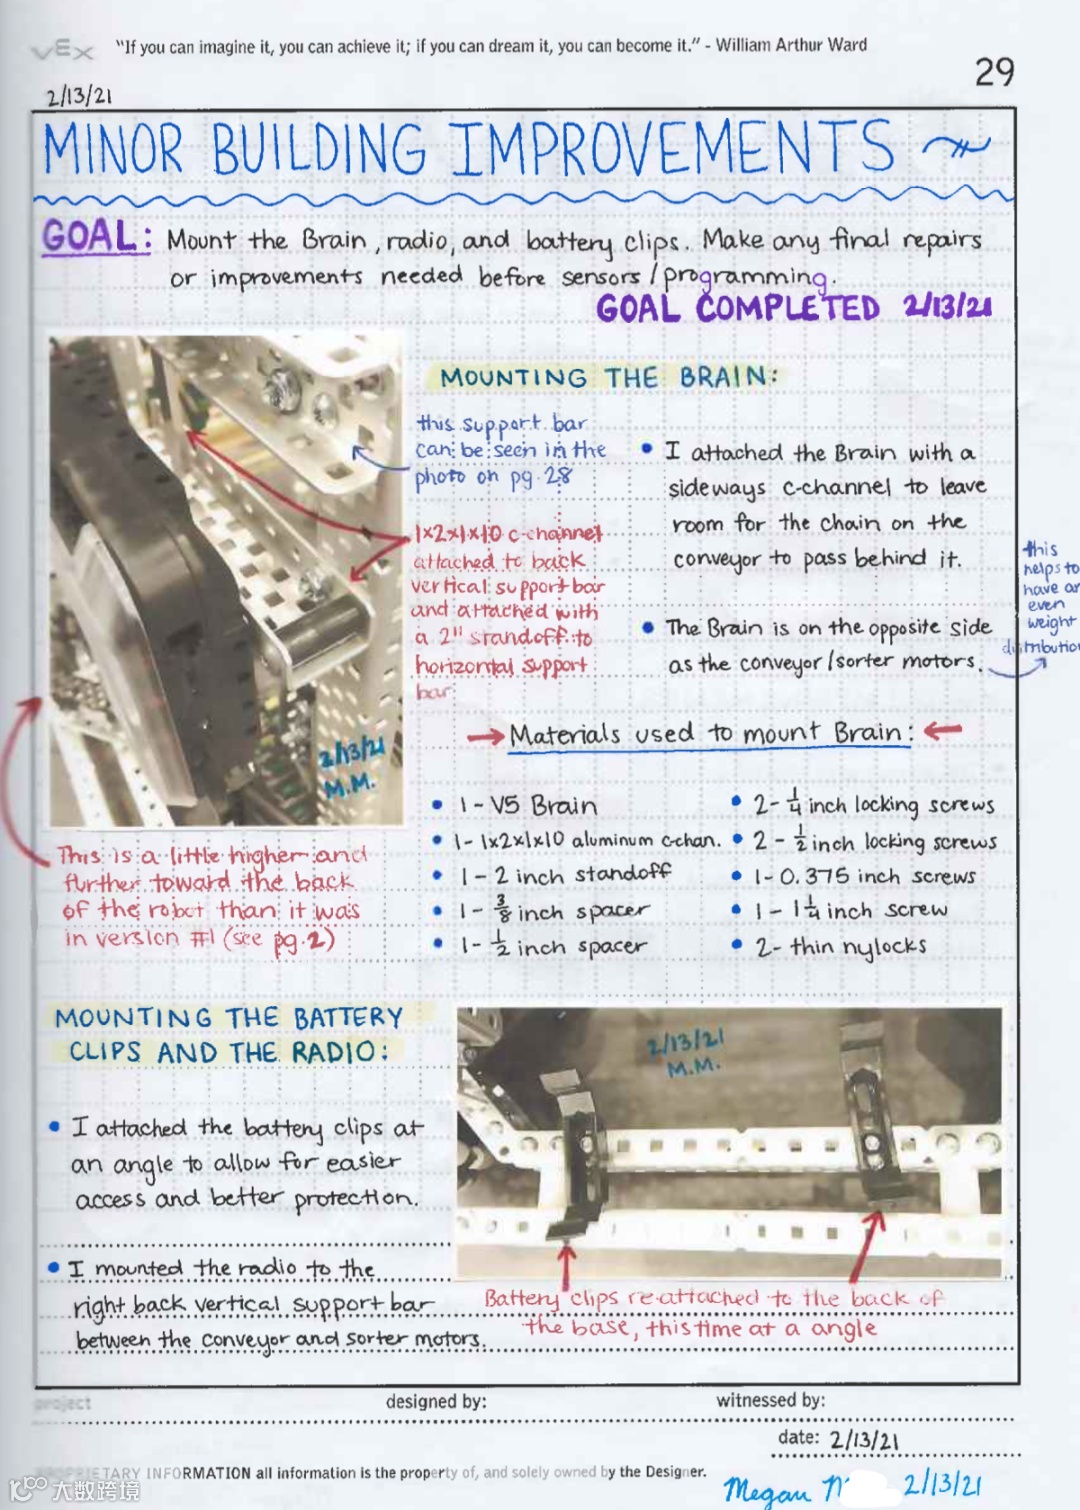 VEX
"If you can imagine it, you can achieve it; if you can dream it, you can become it." - William Arthur Ward
29
2/13/21
MINOR BUILDING IMPROVEMENTS
GOAL: Mount the Brain, radio, and battery clips. Make any final repairs
or improvements needed before sensors/programming.
GOAL COMPLETED 2/13/21
MOUNTING THE BRAIN:
this support bar
can be seen in the
photo on pg. 28
1x2x1x10 c-channel
attached to back
vertical support bar
and attached with
a 2" standoff to
horizontal support
bar
2/13/21
M.M.
• I attached the Brain with a
sideways c-channel to leave
room for the chain on the
conveyor to pass behind it.
• The Brain is on the opposite side
as the conveyor/sorter motors.
this
helps to
have an
even
weight
distribution
→ Materials used to mount Brain: ←
• 1 - V5 Brain
• 1 - 1x2x1x10 aluminum c-chan.
• 1 - 2 inch standoff
• 1 - 3/8 inch spacer
• 1 - 1/2 inch spacer
• 2 - 1/4 inch locking screws
• 2 - 1/2 inch locking screws
• 1 - 0.375 inch screws
• 1 - 1 1/4 inch screw
• 2 - thin nylocks
This is a little higher and
further toward the back
of the robot than it was
in version #1 (see pg. 2)
MOUNTING THE BATTERY
CLIPS AND THE RADIO:
• I attached the battery clips at
an angle to allow for easier
access and better protection.
• I mounted the radio to the
right back vertical support bar
between the conveyor and sorter motors.
2/13/21
M.M.
Battery clips re-attached to the back of
the base, this time at a angle
project
designed by:
witnessed by:
date: 2/13/21
PROPRIETARY INFORMATION all information is the property of, and solely owned by the Designer.
Megan M 2/13/21
大数跨境